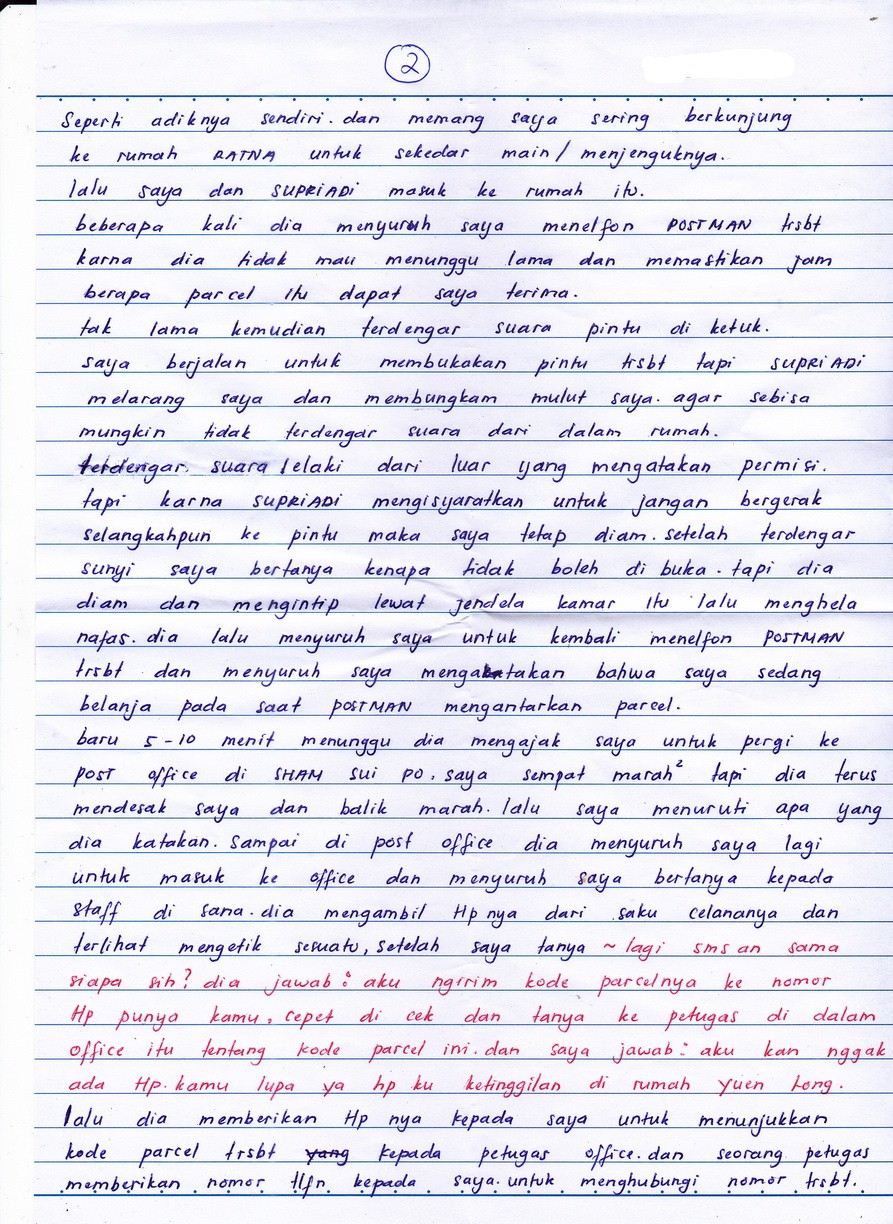 2
Seperti adiknya sendiri. dan memang saya sering berkunjung
ke rumah RATNA untuk sekedar main / menjenguknya.
lalu saya dan SUPRIADI masuk ke rumah itu.
beberapa kali dia menyuruh saya menelfon POSTMAN trsbt
karna dia tidak mau menunggu lama dan memastikan jam
berapa parcel itu dapat saya terima.
tak lama kemudian terdengar suara pintu di ketuk.
saya berjalan untuk membukakan pintu trsbt tapi SUPRIADI
melarang saya dan membungkam mulut saya. agar sebisa
mungkin tidak terdengar suara dari dalam rumah.
terdengar suara lelaki dari luar yang mengatakan permisi.
tapi karna SUPRIADI mengisyaratkan untuk jangan bergerak
selangkahpun ke pintu maka saya tetap diam. setelah terdengar
sunyi saya bertanya kenapa tidak boleh di buka. tapi dia
diam dan mengintip lewat jendela kamar itu lalu menghela
nafas. dia lalu menyuruh saya untuk kembali menelfon POSTMAN
trsbt dan menyuruh saya mengatakan bahwa saya sedang
belanja pada saat POSTMAN mengantarkan parcel.
baru 5-10 menit menunggu dia mengajak saya untuk pergi ke
post office di SHAM SUI PO. saya sempat marah² tapi dia terus
mendesak saya dan balik marah. lalu saya menuruti apa yang
dia katakan. Sampai di post office dia menyuruh saya lagi
untuk masuk ke office dan menyuruh saya bertanya kepada
staff di sana. dia mengambil Hp nya dari saku celananya dan
terlihat mengetik sesuatu, setelah saya tanya ~ lagi sms an sama
siapa sih? dia jawab: aku ngirim kode parcelnya ke nomor
Hp punya kamu, cepet di cek dan tanya ke petugas di dalam
office itu tentang kode parcel ini. dan saya jawab: aku kan nggak
ada Hp. kamu lupa ya hp ku ketinggilan di rumah Yuen Long.
lalu dia memberikan Hp nya kepada saya untuk menunjukkan
kode parcel trsbt yang kepada petugas office. dan seorang petugas
memberikan nomor tlfn kepada saya. untuk menghubungi nomor trsbt.